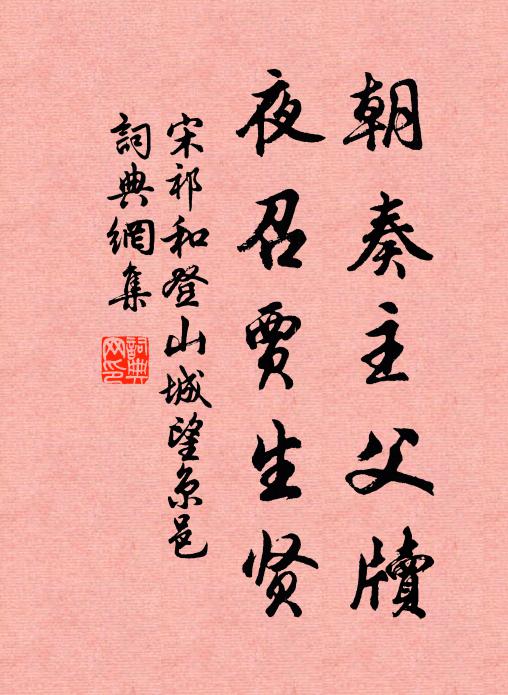 朝奏主父牘
夜召賈生贤
宋祁和登山城望京邑
詞典網集
詞典网印